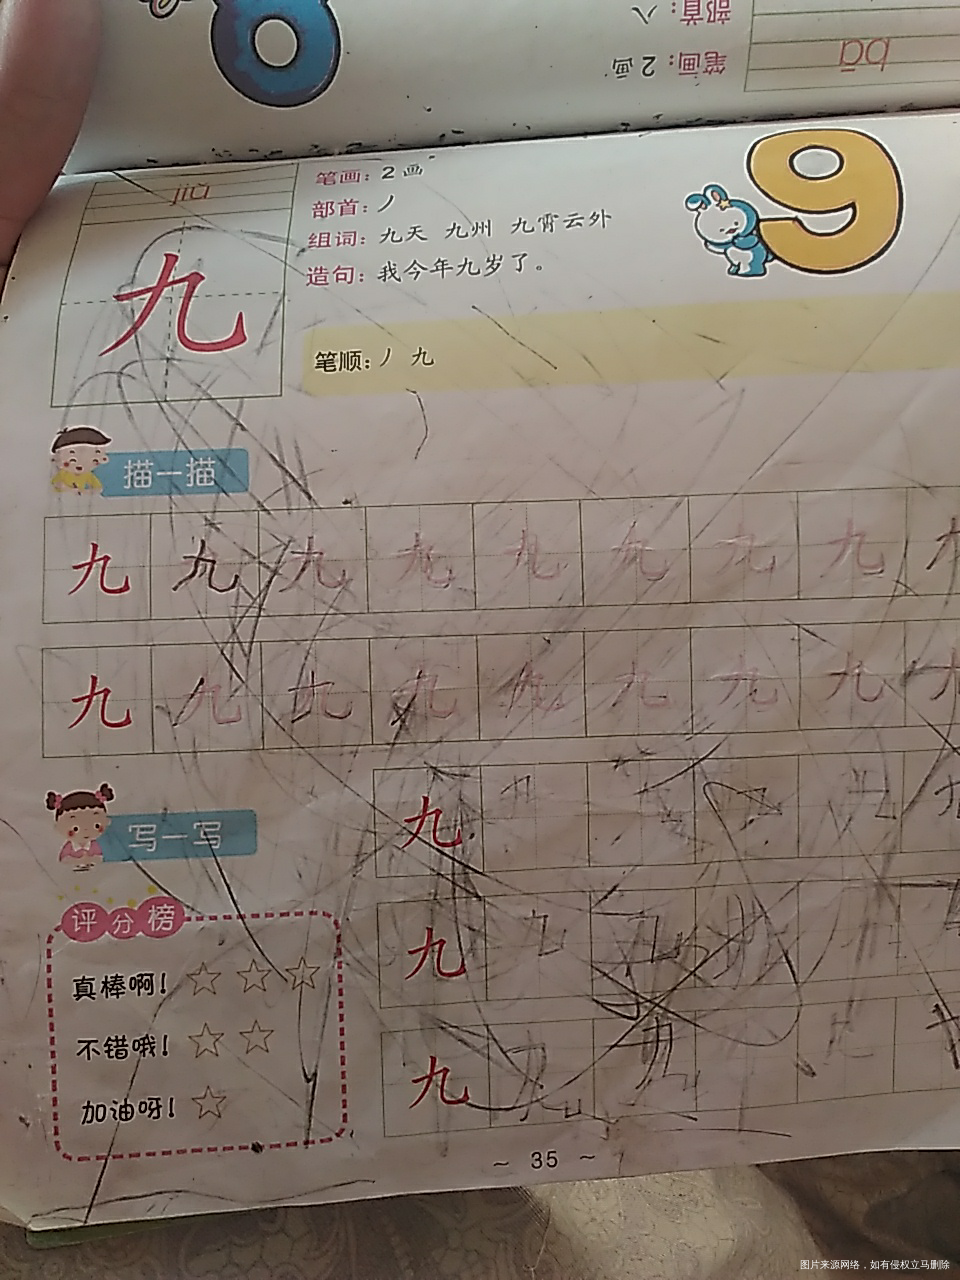 部首：八
笔画：2画
bā
jiǔ
九
笔画：2画
部首：丿
组词：九天 九州 九霄云外
造句：我今年九岁了。
9
笔顺：丿 九
描一描
九 九 九 九 九 九 九 九
九 九 九 九 九 九 九 九
写一写
九
九 九
九 九
评分榜
真棒啊！☆ ☆ ☆
不错哦！☆ ☆
加油呀！☆
~ 35 ~
图片来源网络，如有侵权立马删除